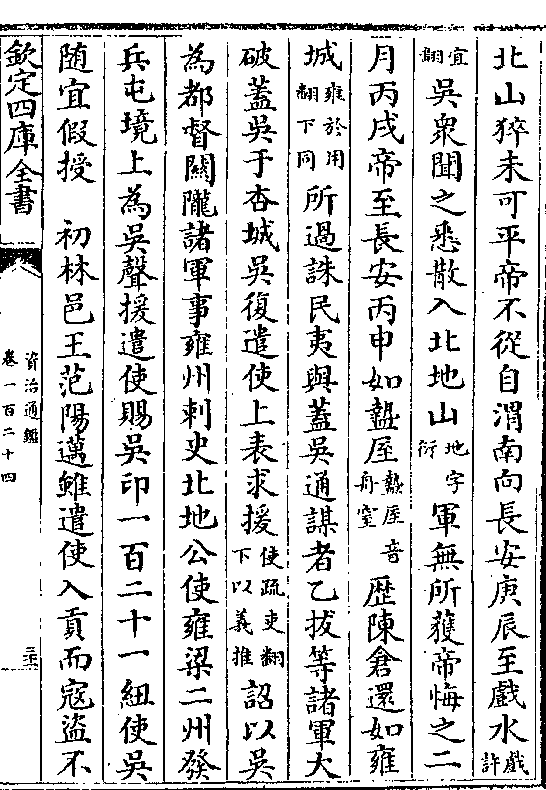 北山猝未可平帝不從自渭南向長安庚辰至戲水戲許
宜翻吳衆聞之悉散入北地山地字衍軍無所獲帝悔之二
月丙戌帝至長安丙申如盩厔盩厔音舟窒歴陳倉還如雍
城雍於用翻下同所過誅民夷與蓋吳通謀者乙拔等諸軍大
破蓋吳于杏城吳復遣使上表求援使疏吏翻下以義推詔以吳
為都督關隴諸軍事雍州刺史北地公使雍梁二州發
兵屯境上為吳聲援遣使賜吳印一百二十一紐使吳
随宜假授　初林邑王范陽邁雖遣使入貢而寇盜不
欽定四庫全書
資治通鑑
卷一百二十四